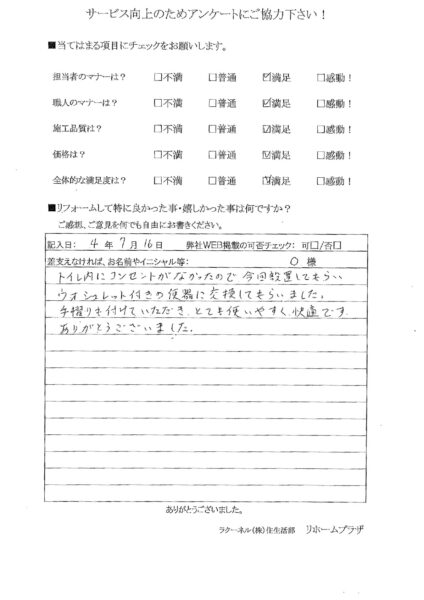 サービス向上のためアンケートにご協力下さい！
■当てはまる項目にチェックをお願いします。
担当者のマナーは？ □不満 □普通 ☑満足 □感動！
職人のマナーは？ □不満 □普通 ☑満足 □感動！
施工品質は？ □不満 □普通 ☑満足 □感動！
価格は？ □不満 □普通 ☑満足 □感動！
全体的な満足度は？ □不満 □普通 ☑満足 □感動！
■リフォームして特に良かった事・嬉しかった事は何ですか？
ご感想、ご意見を何でも自由にお書きください。
記入日： 4 年 7 月 16 日 弊社WEB掲載の可否チェック： 可□/否□
差支えなければ、お名前やイニシャル等： O 様
トイレ内にコンセントがなかったので 今回設置してもらい
ウォシュレット付きの便器に交換してもらいました。
手摺りも付けていただき、とても使いやすく快適です。
ありがとうございました。
ありがとうございました。
ラクーネル(株)住生活部 リホームプラザ